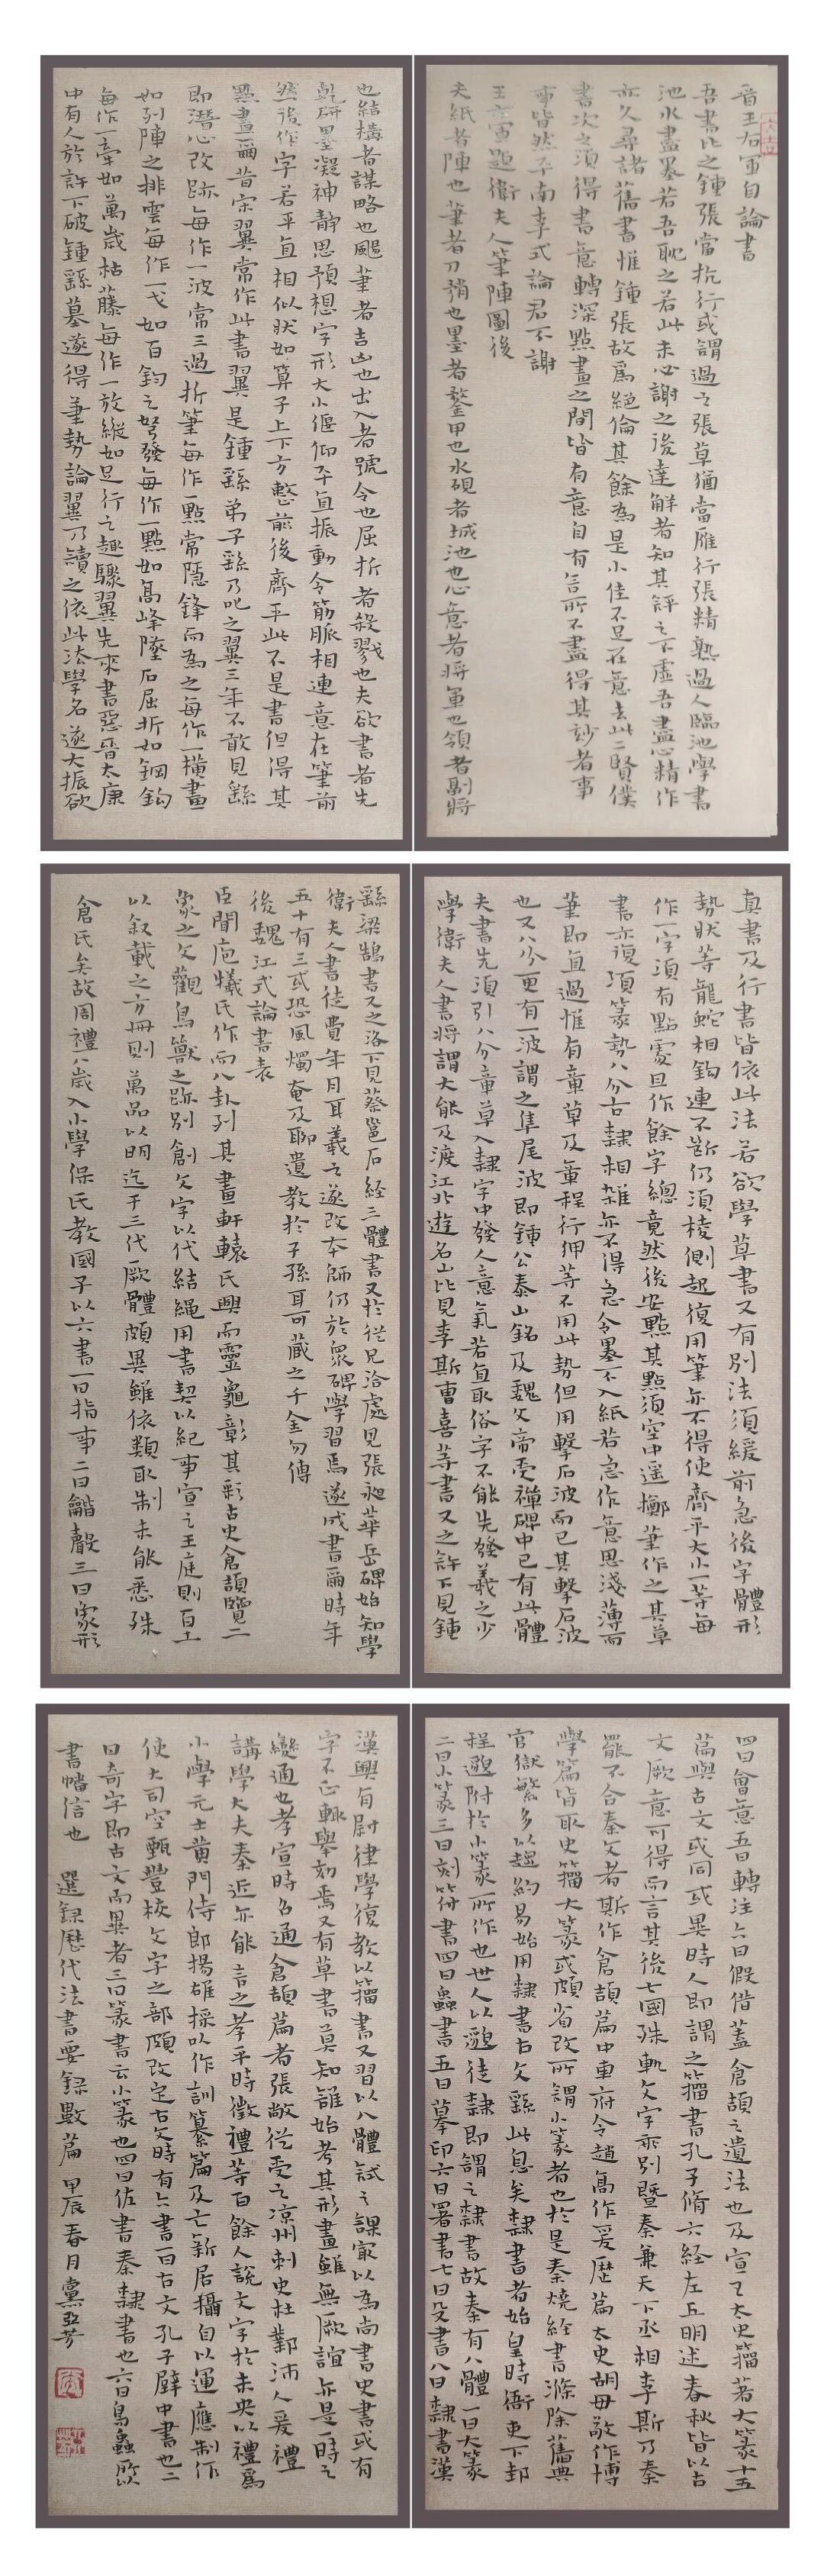 晉王右軍自論書
吾書比之鍾張當抗行或謂過之張草猶當雁行張精熟過人臨池學書
池水盡墨若吾耽之若此未必謝之後達解者知其評之不虛吾盡心精作
亦久尋諸舊書惟鍾張故爲絕倫其餘為是小佳不足在意去此二賢僕
書次之須得書意轉深點畫之間皆有意自有言所不盡得其妙者事
事皆然平南李式論君不謝
王右軍題衛夫人筆陣圖後
夫紙者陣也筆者刀矟也墨者鍪甲也水硯者城池也心意者將軍也領者副將
也結構者謀略也颺筆者吉凶也出入者號令也屈折者殺戮也夫欲書者先
乾研墨凝神靜思預想字形大小偃仰平直振動令筋脈相連意在筆前
然後作字若平直相似狀如算子上下方整前後齊平此不是書但得其
點畫爾昔宋翼常作此書翼是鍾繇弟子繇乃叱之翼三年不敢見繇
即潛心改跡每作一波常三過折筆每作一點常隱鋒而為之每作一橫畫
如列陣之排雲每作一戈如百鈞之弩發每作一點如高峰墜石屈折如鋼鉤
每作一牽如萬歲枯藤每作一放縱如足行之趣驟翼先來書惡晉太康
中有人於許下破鍾繇墓遂得筆勢論翼乃讀之依此法學名遂大振欲
真書及行書皆依此法若欲學草書又有別法須緩前急後字體形
勢狀等龍蛇相鉤連不斷仍須稜側起復用筆亦不得使齊平大小一等每
作一字須有點處且作餘字總竟然後安點其點須空中遥擲筆作之其草
書亦復須篆勢八分古隸相雜亦不得急令墨不入紙若急作意思淺薄而
筆即直過惟有章草及章程行狎等不用此勢但用擊石波而已其擊石波
也又八分更有一波謂之隼尾波即鍾公泰山銘及魏文帝受禪碑中已有此體
夫書先須引八分章草入隸字中發人意氣若直取俗字不能先發羲之少
學衛夫人書將謂大能及渡江北遊名山比見李斯曹喜等書又之許下見鍾
繇梁鵠書又之洛下見蔡邕石経三體書又於從兄洽處見張昶華岳碑始知學
衛夫人書徒費年月耳羲之遂改本師仍於衆碑學習焉遂成書爾時年
五十有三或恐風燭奄及聊遺教於子孫耳可藏之千金勿傳
後魏江式論書表
臣聞庖犧氏作而八卦列其畫軒轅氏興而靈龜彰其彩古史倉頡覽二
象之文觀鳥獸之跡別創文字以代結繩用書契以紀事宣之王庭則百工
以叙載之方冊則萬品以明迄于三代厥體頗異雖依類取制未能悉殊
倉氏矣故周禮八歲入小學保氏教國子以六書一曰指事二曰龤聲三曰象形
四曰會意五曰轉注六曰假借蓋倉頡之遺法也及宣王太史籀著大篆十五
篇與古文或同或異時人即謂之籀書孔子脩六経左丘明述春秋皆以古
文厥意可得而言其後七國殊軌文字乖別暨秦兼天下丞相李斯乃奏
罷不合秦文者斯作倉頡篇中車府令趙高作爰歴篇太史胡毋敬作博
學篇皆取史籀大篆或頗省改所謂小篆者也於是秦燒経書滌除舊典
官獄繁多以趨約易始用隸書古文繇此息矣隸書者始皇時衙吏下邽
程邈附於小篆所作也世人以邈徒隸即謂之隸書故秦有八體一曰大篆
二曰小篆三曰刻符書四曰蟲書五曰摹印六曰署書七曰殳書八曰隸書漢
漢興有尉律學復教以籀書又習以八體試之課㝡以為尚書史書或有
字不正輒舉劾焉又有草書莫知誰始考其形畫雖無厥誼亦是一時之
變通也孝宣時召通倉頡篇者張敞從受之凉州刺史杜鄴沛人爰禮
講學大夫秦近亦能言之孝平時徵禮等百餘人說文字於未央以禮爲
小學元士黄門侍郎揚雄採以作訓纂篇及亡新居攝自以運應制作
使大司空甄豐校文字之部頗改定古文時有六書一曰古文孔子壁中書也二
曰奇字即古文而異者三曰篆書云小篆也四曰佐書秦隸書也六曰鳥蟲所以
書幡信也 選録歷代法書要録數篇 甲辰春月黨亞芳